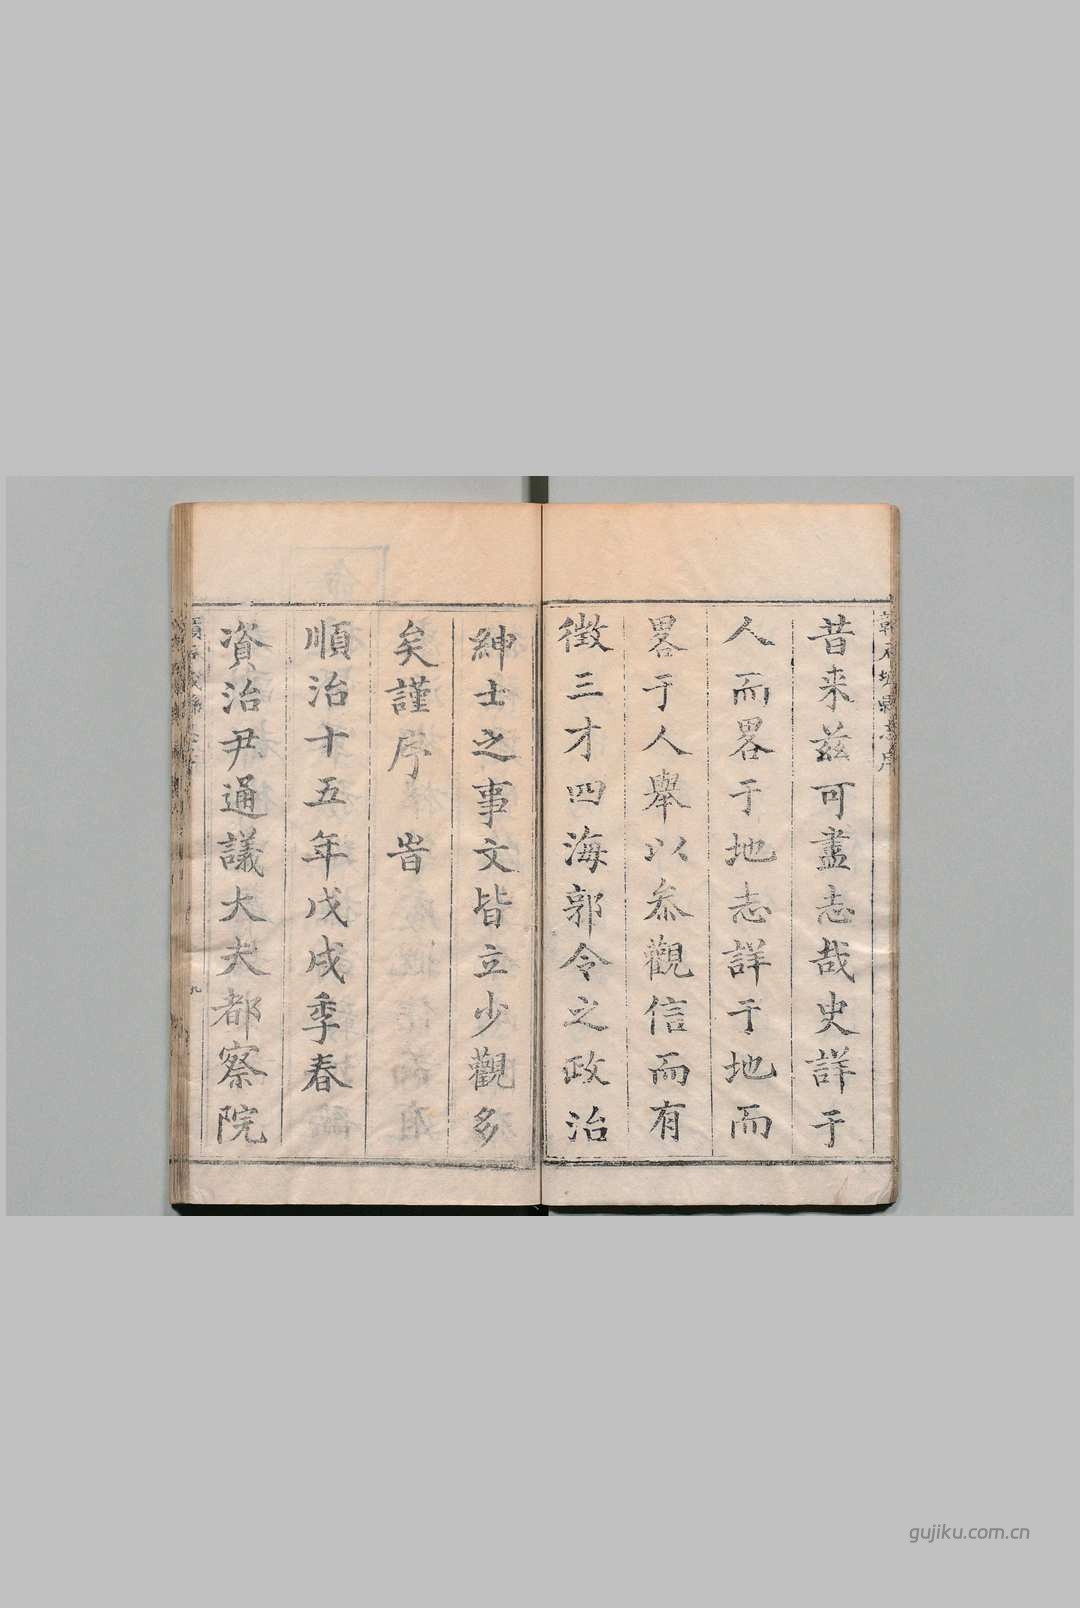 昔来兹可盡志哉史詳于
人而畧于地志詳于地而
畧于人舉以叅觀信而有
徵三才四海郭令之政治
紳士之事文皆立少觀多
矣謹序旹
順治十五年戊戌季春
資治尹通議大夫都察院
九
gujiku.com.cn